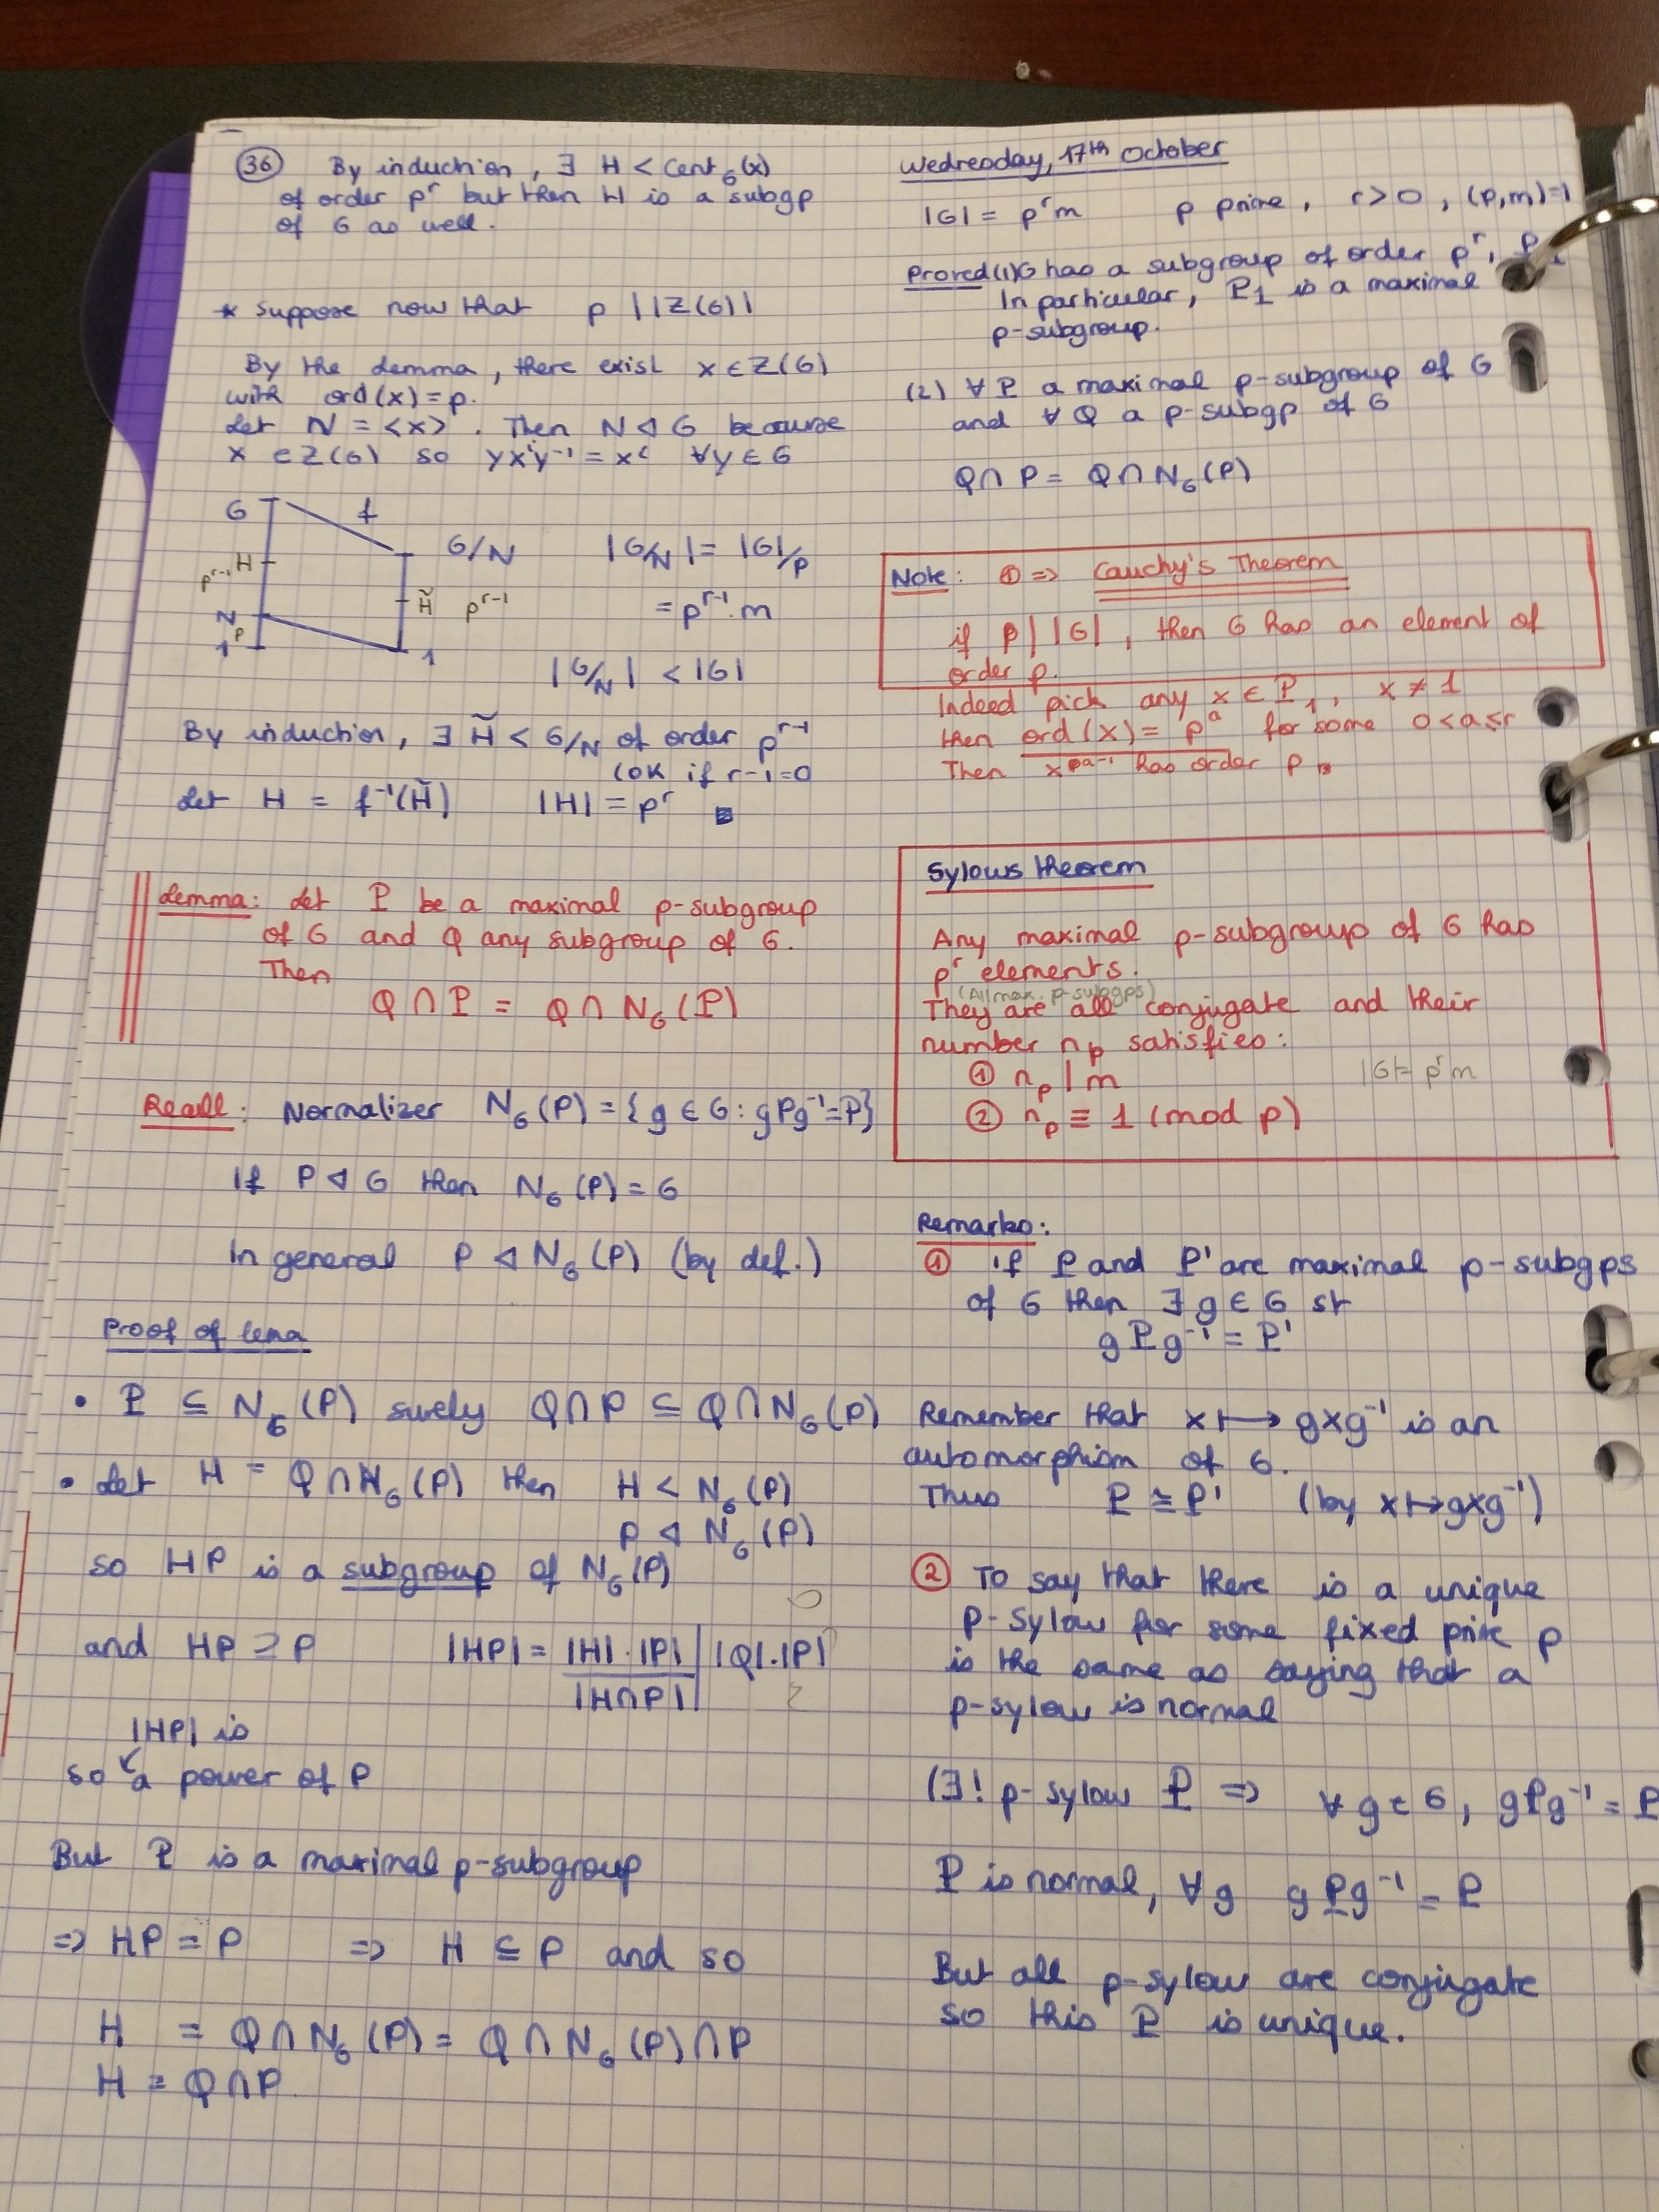 36 By induction, ∃ H < Cent_G(x)
of order p^r but then H is a subgp
of G as well.
* Suppose now that p | |Z(G)|
By the Lemma, there exist x ∈ Z(G)
with ord(x) = p.
Let N = <x>. Then N ◁ G because
x ∈ Z(G) so yx^iy^-1 = x^i ∀y ∈ G
G f
G/N |G/N| = |G|/p
p^r-1 H
H̃ p^r-1 = p^r-1.m
N
p
1 1
|G/N| < |G|
By induction, ∃ H̃ < G/N of order p^r-1
(OK if r-1=0
Let H = f^-1(H̃) |H| = p^r
Lemma: Let P be a maximal p-subgroup
of G and Q any subgroup of G.
Then
Q ∩ P = Q ∩ N_G(P)
Recall: Normalizer N_G(P) = {g ∈ G : gPg^-1 = P}
If P ◁ G then N_G(P) = G
In general P ◁ N_G(P) (by def.)
Proof of lema
• P ⊆ N_G(P) surely Q∩P ⊆ Q∩N_G(P)
• Let H = Q∩N_G(P) then H < N_G(P)
P ◁ N_G(P)
so HP is a subgroup of N_G(P)
and HP ⊇ P |HP| = |H|.|P| / |H∩P| | |Q|.|P|
|HP| is
so a power of P
But P is a maximal p-subgroup
=> HP = P => H ⊆ P and so
H = Q∩N_G(P) = Q∩N_G(P)∩P
H = Q∩P
Wednesday, 17th October
|G| = p^r m p prime, r>0, (p,m)=1
Proved (1) G has a subgroup of order p^r, P_1
In particular, P_1 is a maximal
p-subgroup.
(2) ∀ P a maximal p-subgroup of G
and ∀ Q a p-subgp of G
Q∩P = Q∩N_G(P)
Note: ① => Cauchy's Theorem
if p | |G|, then G has an element of
order p.
Indeed pick any x ∈ P_1, x ≠ 1
then ord(x) = p^a for some 0<a≤r
Then x^p^a-1 has order p
Sylows theorem
Any maximal p-subgroup of G has
p^r elements.
(All max. p-subgps)
They are all conjugate and their
number n_p satisfies:
① n_p | m |G| = p^r m
② n_p ≡ 1 (mod p)
Remarks:
① if P and P' are maximal p-subgps
of G then ∃ g ∈ G st
gPg^-1 = P'
Remember that x ↦ gxg^-1 is an
automorphism of G.
Thus P ≅ P' (by x ↦ gxg^-1)
② To say that there is a unique
p-sylow for some fixed prime p
is the same as saying that a
p-sylow is normal
(∃! p-sylow P => ∀ g ∈ G, gPg^-1 = P
P is normal, ∀g gPg^-1 = P
But all p-sylow are conjugate
so this P is unique.